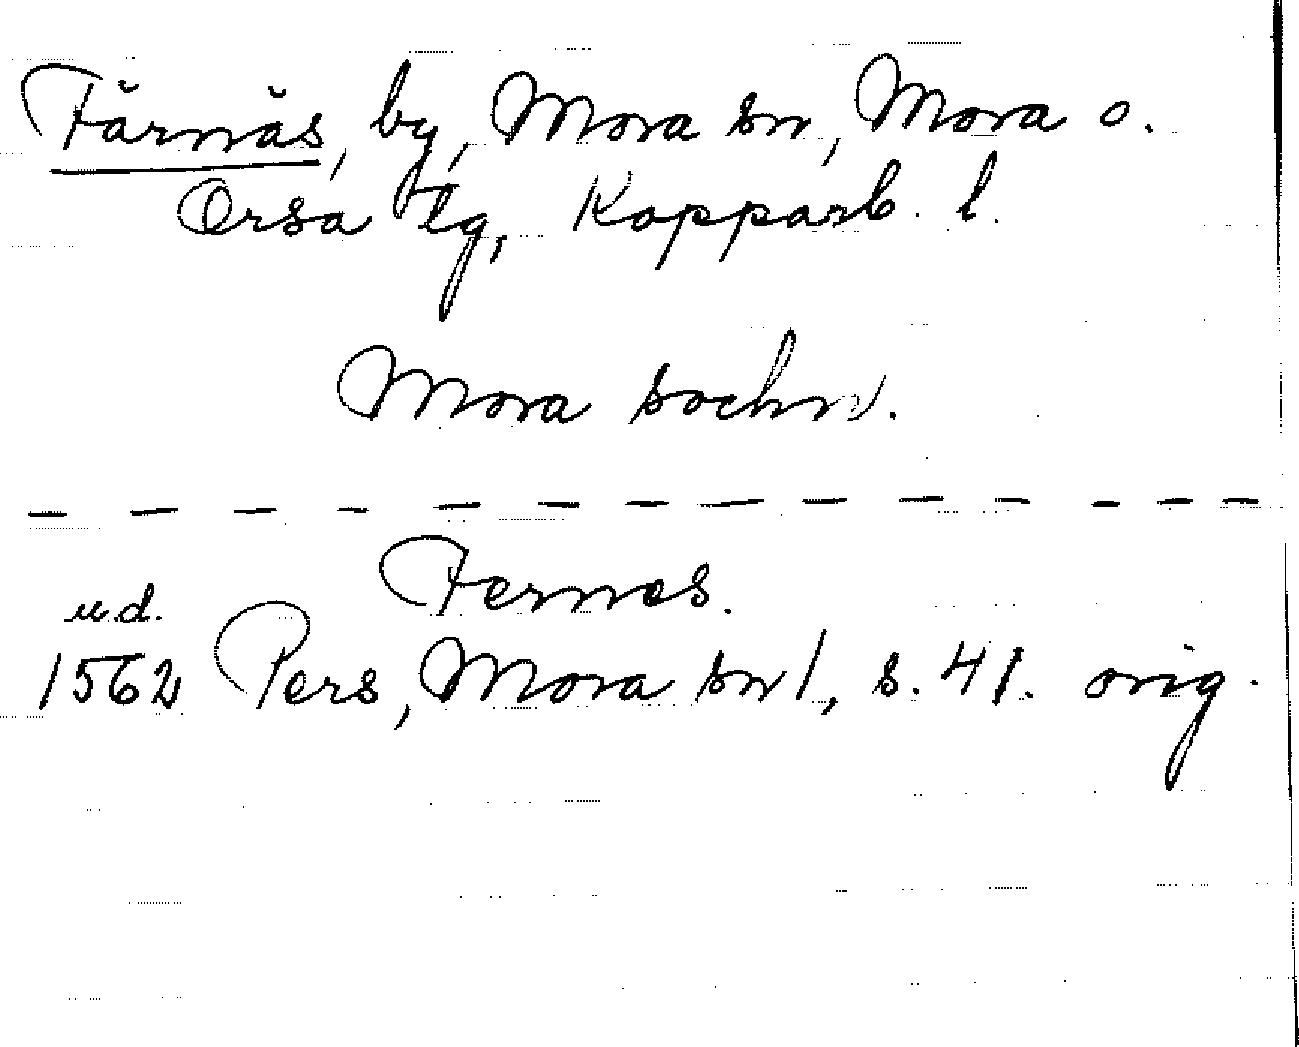 Färnäs, by, Mora sn, Mora o.
Orsa tg, Kopparb. l.
Mora sochn.
Fernes.
u.d.
1562 Pers, Mora sn 1, s. 41. orig.